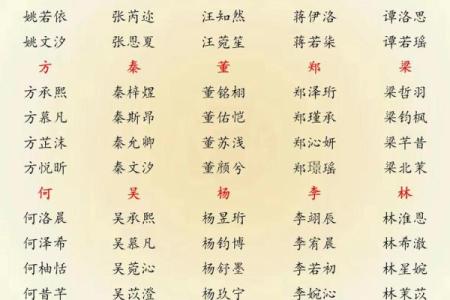 姚若依 张芮迩 汪知然 蒋伊洛 谭洛思
姚文汐 张恩夏 汪菀笙 蒋若柒 谭若瑶
方 秦 董 郑 梁
方承熙 秦梓焜 董铭栩 郑泽珩 梁哲羽
方慕凡 秦斯昂 董佑恺 郑瑾承 梁钧枫
方芷沫 秦允卿 董苏浅 郑沁妍 梁芊昔
方悦昕 秦文汐 董颜兮 郑璟瑶 梁北茉
何 吴 杨 李 林
何洛晨 吴承熙 杨昱珩 李翊辰 林淮恩
何泽希 吴慕凡 杨钧博 李宥晨 林希澈
何柚恬 吴菀沁 杨舒墨 李若初 林星婉
何昔芊 吴苡澄 杨玖宁 李婉沁 林茉苡